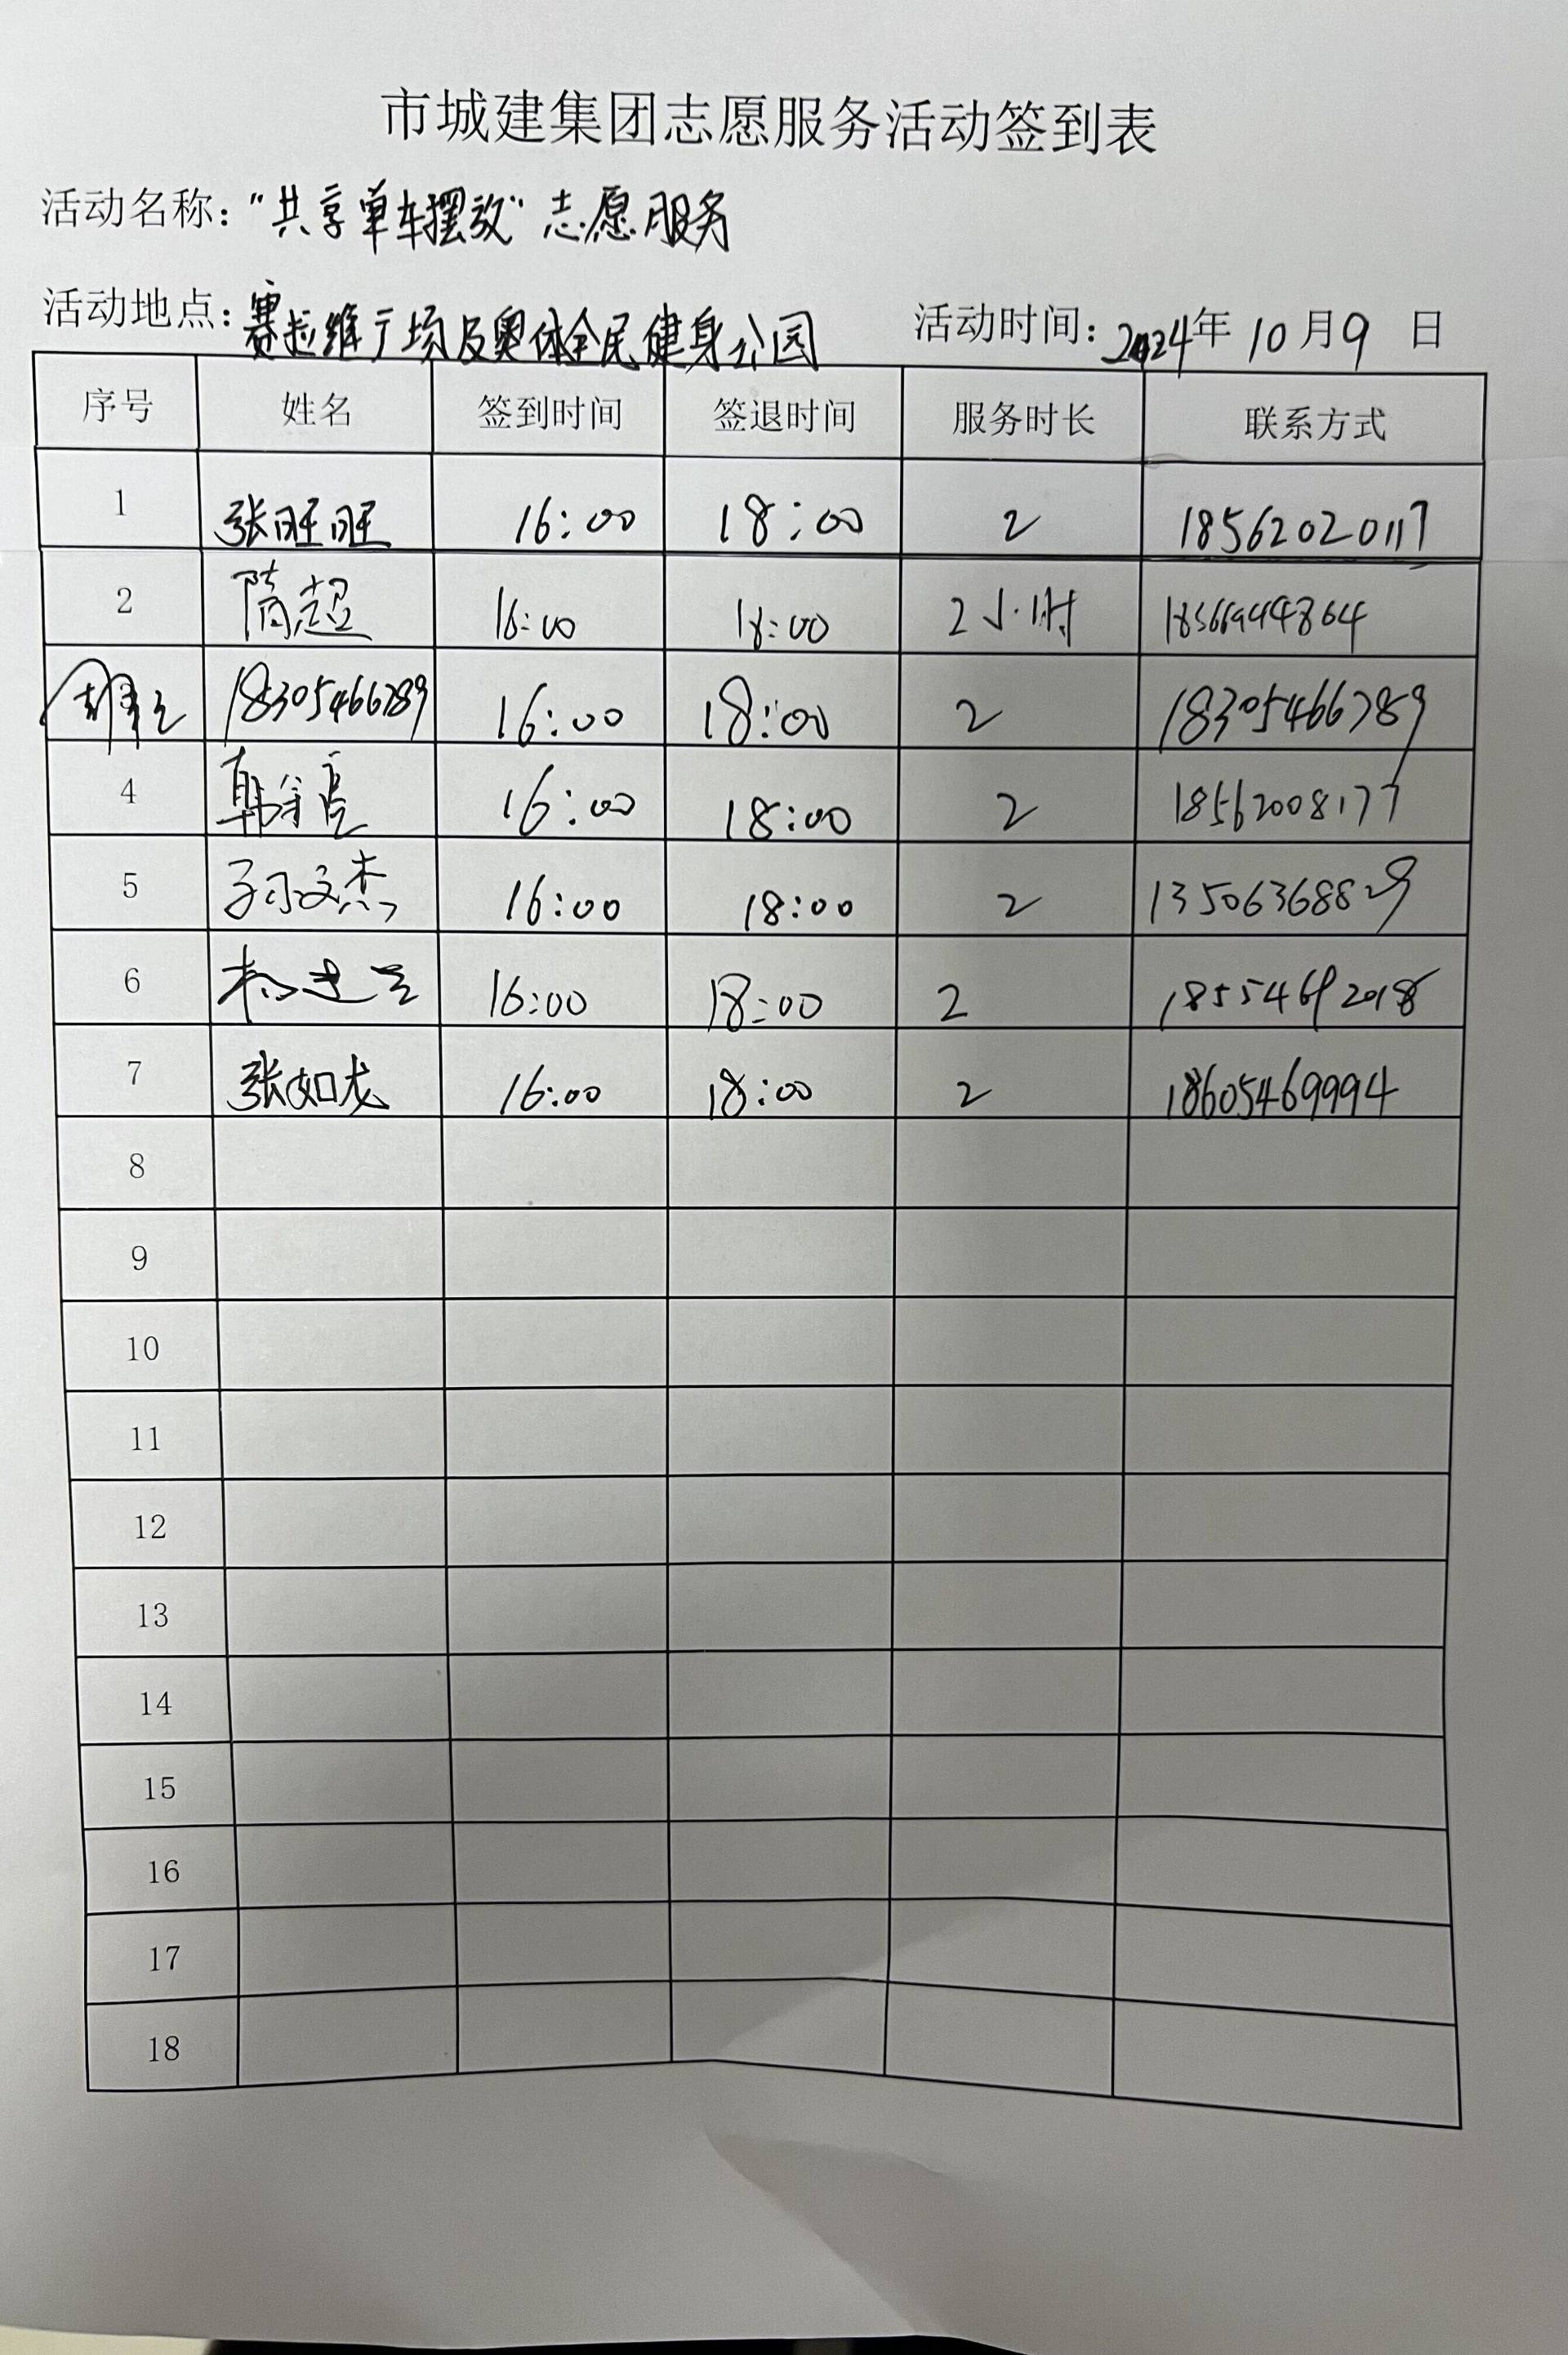 市城建集团志愿服务活动签到表
活动名称："共享单车摆放"志愿服务
活动地点：赛拉维广场及奥体全民健身公园 活动时间：2024年10月9日
序号 姓名 签到时间 签退时间 服务时长 联系方式
1 张旺旺 16:00 18:00 2 18562020117
2 隋超 16:00 18:00 2小时 18566944864
18305466789 16:00 18:00 2 18305466789
4 16:00 18:00 2 18562008177
5 孙文杰 16:00 18:00 2 13506368829
6 16:00 18:00 2
7 张如龙 16:00 18:00 2 18605469994
8
9
10
11
12
13
14
15
16
17
18